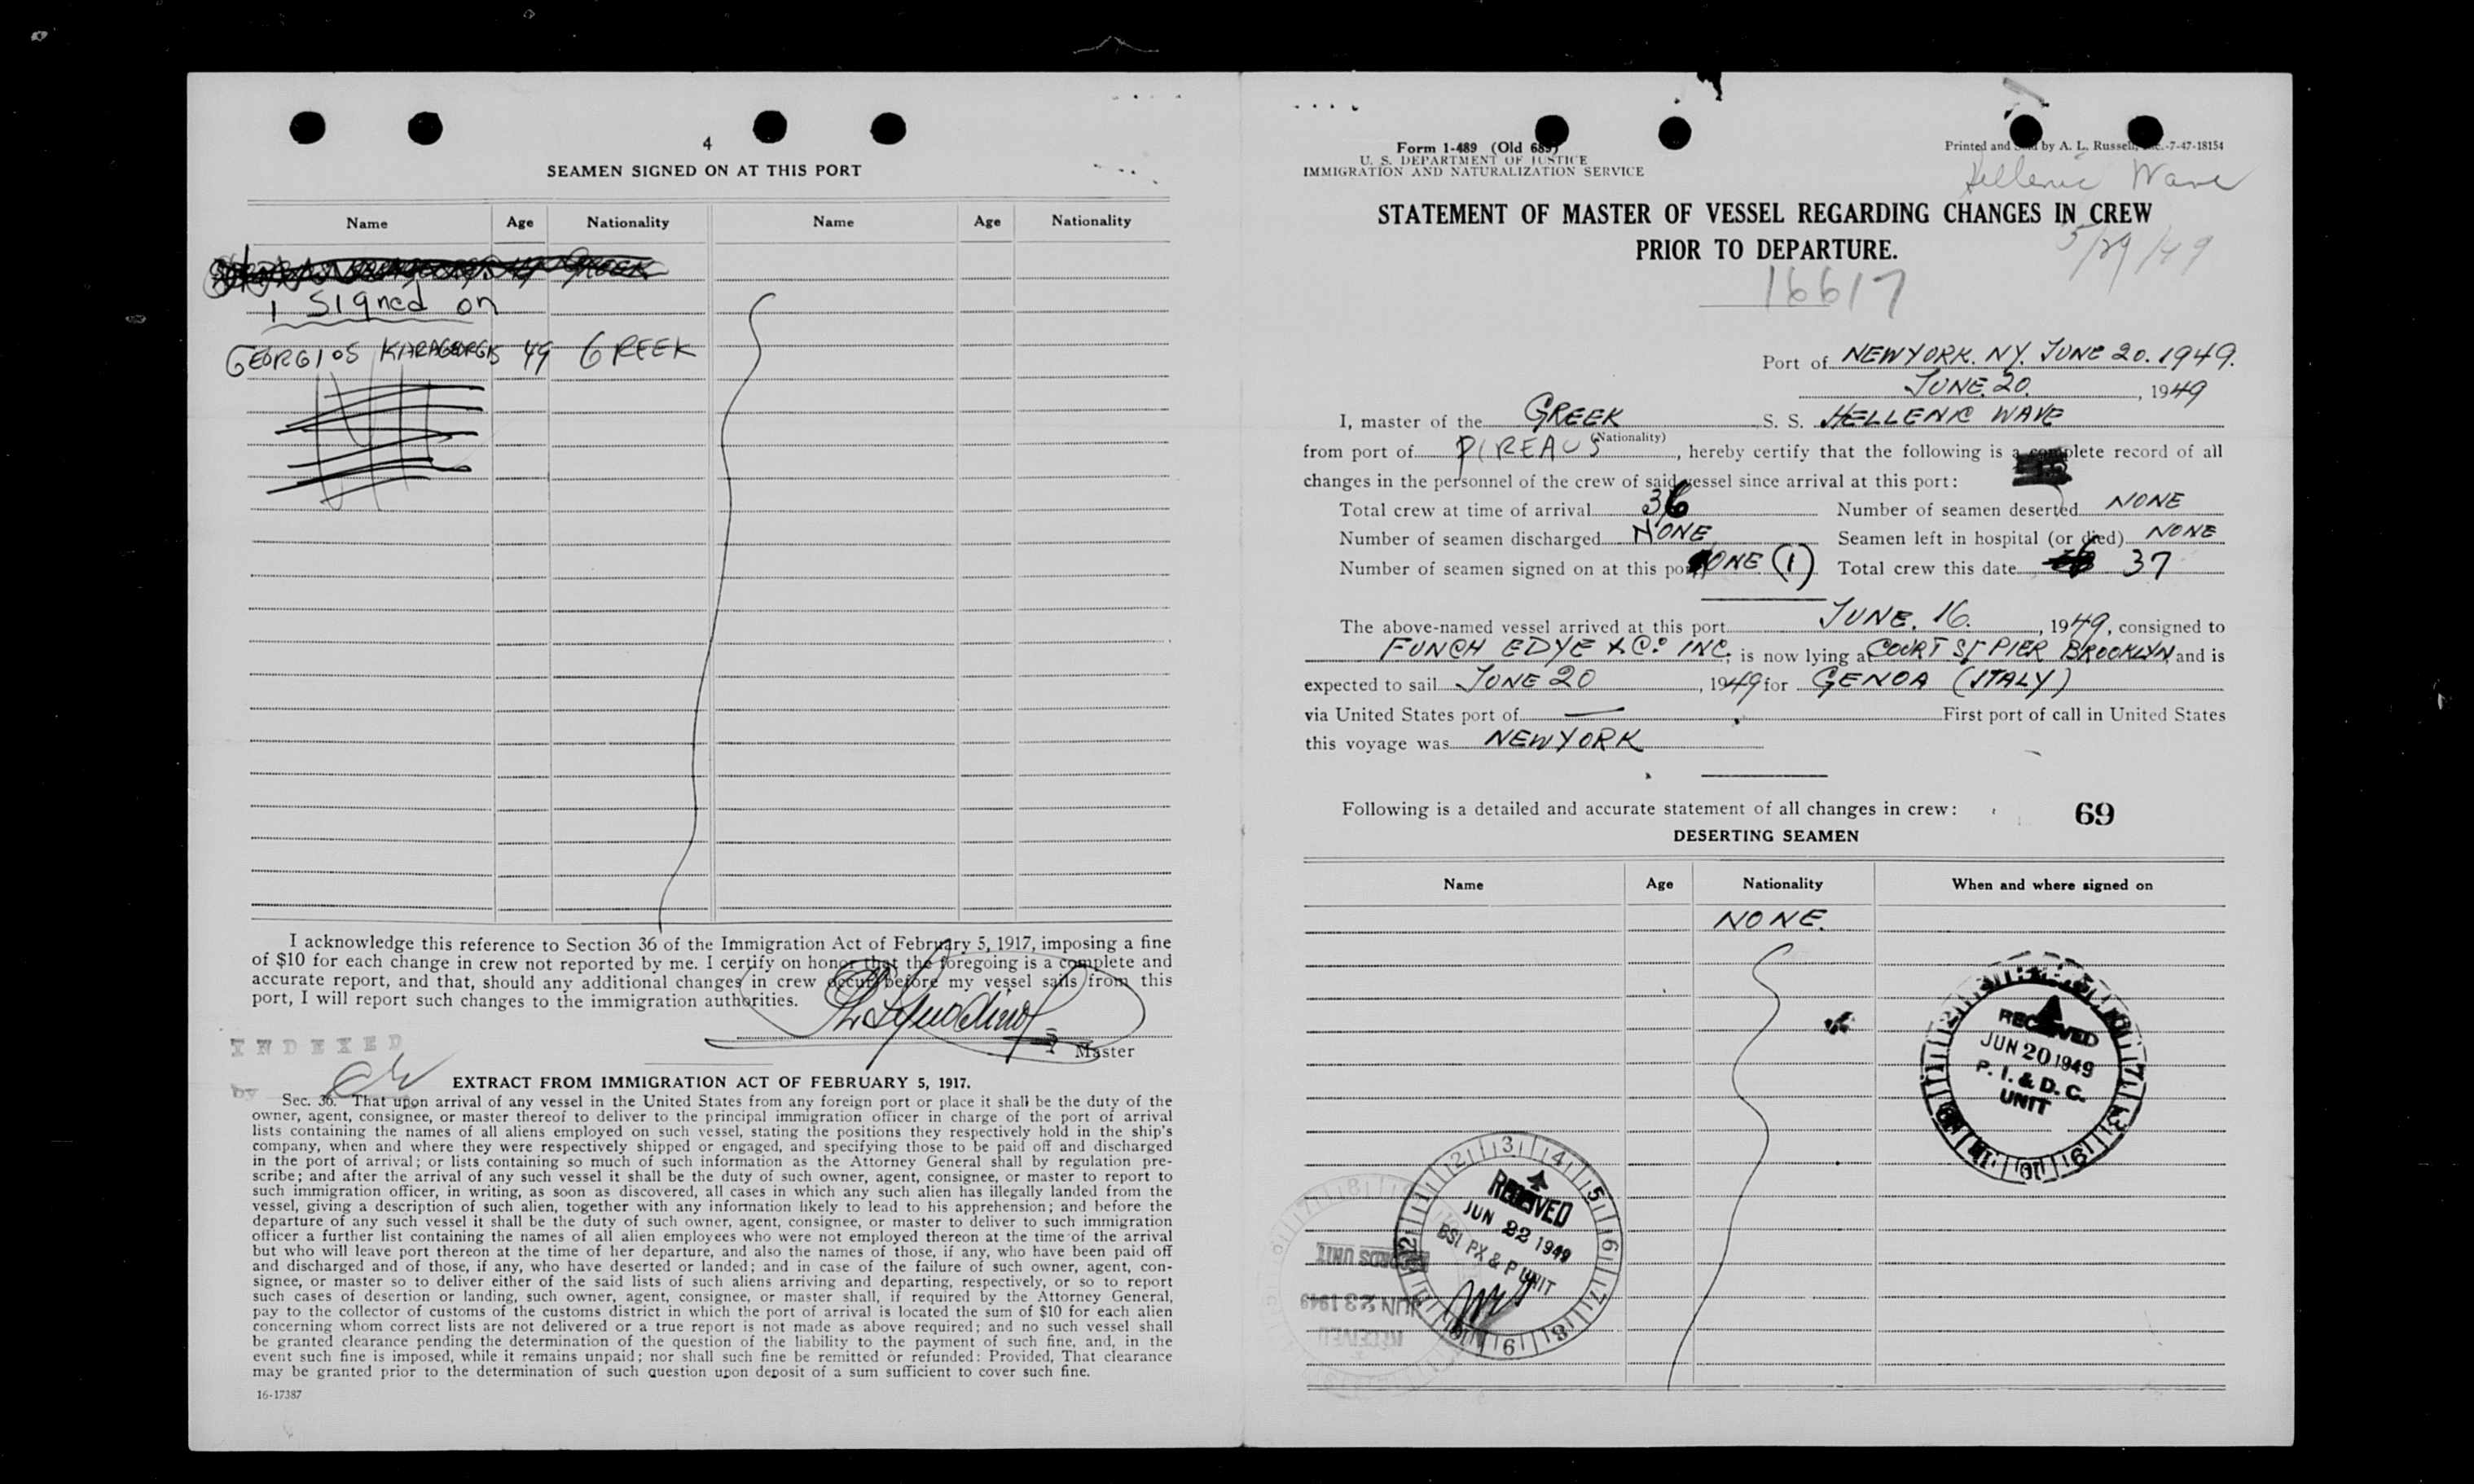 4
SEAMEN SIGNED ON AT THIS PORT
Name Age Nationality Name Age Nationality
GREEK
1 Signed on
GEORGIOS KARAGEORGIS 49 GREEK
I acknowledge this reference to Section 36 of the Immigration Act of February 5, 1917, imposing a fine
of $10 for each change in crew not reported by me. I certify on honor that the foregoing is a complete and
accurate report, and that, should any additional changes in crew occur before my vessel sails from this
port, I will report such changes to the immigration authorities.
Master
INDEXED
by
EXTRACT FROM IMMIGRATION ACT OF FEBRUARY 5, 1917.
Sec. 36. That upon arrival of any vessel in the United States from any foreign port or place it shall be the duty of the
owner, agent, consignee, or master thereof to deliver to the principal immigration officer in charge of the port of arrival
lists containing the names of all aliens employed on such vessel, stating the positions they respectively hold in the ship's
company, when and where they were respectively shipped or engaged, and specifying those to be paid off and discharged
in the port of arrival; or lists containing so much of such information as the Attorney General shall by regulation pre-
scribe; and after the arrival of any such vessel it shall be the duty of such owner, agent, consignee, or master to report to
such immigration officer, in writing, as soon as discovered, all cases in which any such alien has illegally landed from the
vessel, giving a description of such alien, together with any information likely to lead to his apprehension; and before the
departure of any such vessel it shall be the duty of such owner, agent, consignee, or master to deliver to such immigration
officer a further list containing the names of all alien employees who were not employed thereon at the time of the arrival
but who will leave port thereon at the time of her departure, and also the names of those, if any, who have been paid off
and discharged and of those, if any, who have deserted or landed; and in case of the failure of such owner, agent, con-
signee, or master so to deliver either of the said lists of such aliens arriving and departing, respectively, or so to report
such cases of desertion or landing, such owner, agent, consignee, or master shall, if required by the Attorney General,
pay to the collector of customs of the customs district in which the port of arrival is located the sum of $10 for each alien
concerning whom correct lists are not delivered or a true report is not made as above required; and no such vessel shall
be granted clearance pending the determination of the question of the liability to the payment of such fine, and, in the
event such fine is imposed, while it remains unpaid; nor shall such fine be remitted or refunded: Provided, That clearance
may be granted prior to the determination of such question upon deposit of a sum sufficient to cover such fine.
16-17387
Form 1-489 (Old 689)
U. S. DEPARTMENT OF JUSTICE
IMMIGRATION AND NATURALIZATION SERVICE
Printed and Sold by A. L. Russell, Inc.-7-47-18154
Hellenic Wave
STATEMENT OF MASTER OF VESSEL REGARDING CHANGES IN CREW
PRIOR TO DEPARTURE.
5/29/49
16617
Port of NEW YORK. NY. JUNE 20. 1949.
JUNE. 20. , 1949
I, master of the GREEK S. S. HELLENIC WAVE
(Nationality)
from port of PIREAUS, hereby certify that the following is a complete record of all
changes in the personnel of the crew of said vessel since arrival at this port:
Total crew at time of arrival 36 Number of seamen deserted NONE
Number of seamen discharged NONE Seamen left in hospital (or died) NONE
Number of seamen signed on at this port ONE (1) Total crew this date 37
The above-named vessel arrived at this port JUNE. 16. , 1949, consigned to
FUNCH EDYE & Co. INC, is now lying at COURT ST PIER BROOKLYN and is
expected to sail JUNE 20 , 1949 for GENOA (ITALY)
via United States port of — First port of call in United States
this voyage was NEW YORK
Following is a detailed and accurate statement of all changes in crew:
69
DESERTING SEAMEN
Name Age Nationality When and where signed on
NONE.
RECEIVED
JUN 20 1949
P. I. & D. C.
UNIT
RECEIVED
JUN 22 1949
BSI PX & P UNIT
RECEIVED
JUN 23 1949